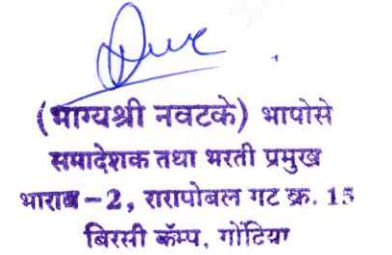 (भाग्यश्री नवटके) भापोसे
समादेशक तथा भरती प्रमुख
भाराब -2, रारापोबल गट क्र. 15
बिरसी कॅम्प, गोंदिया